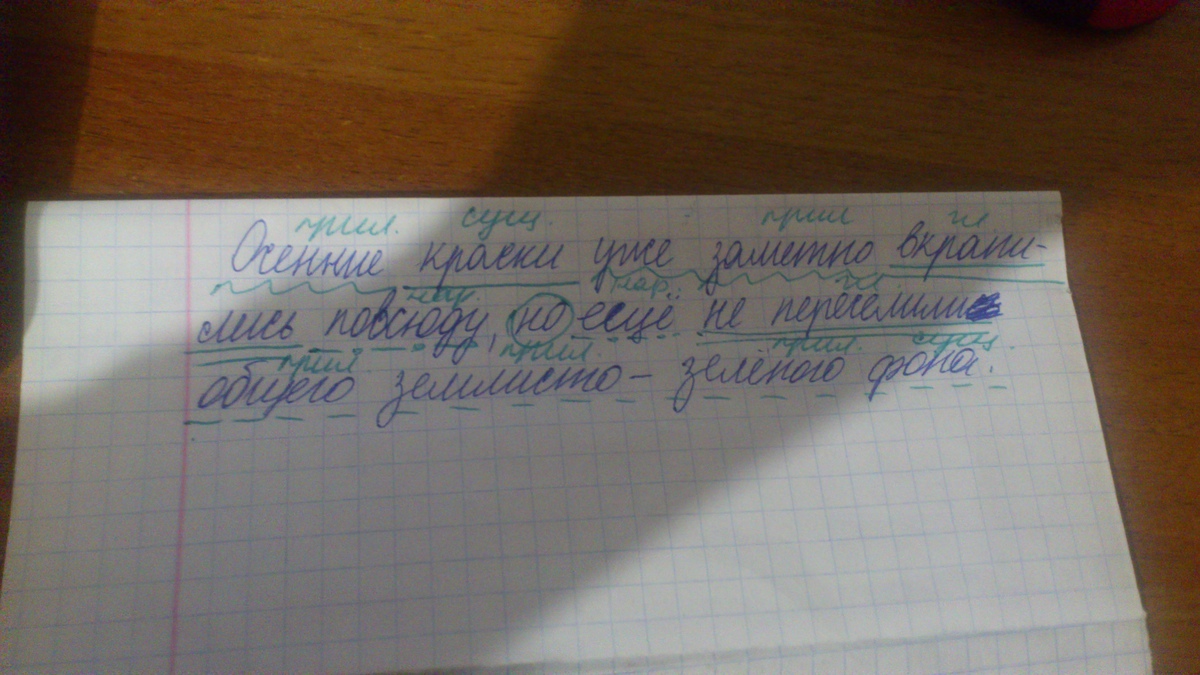 прил. сущ. прил гл
Осенние краски уже заметно вкрапи-
нар. нар. гл.
лись повсюду, но есщё не пересилили
прил прил. прил. сущ.
общего землисто - зелёного фона.